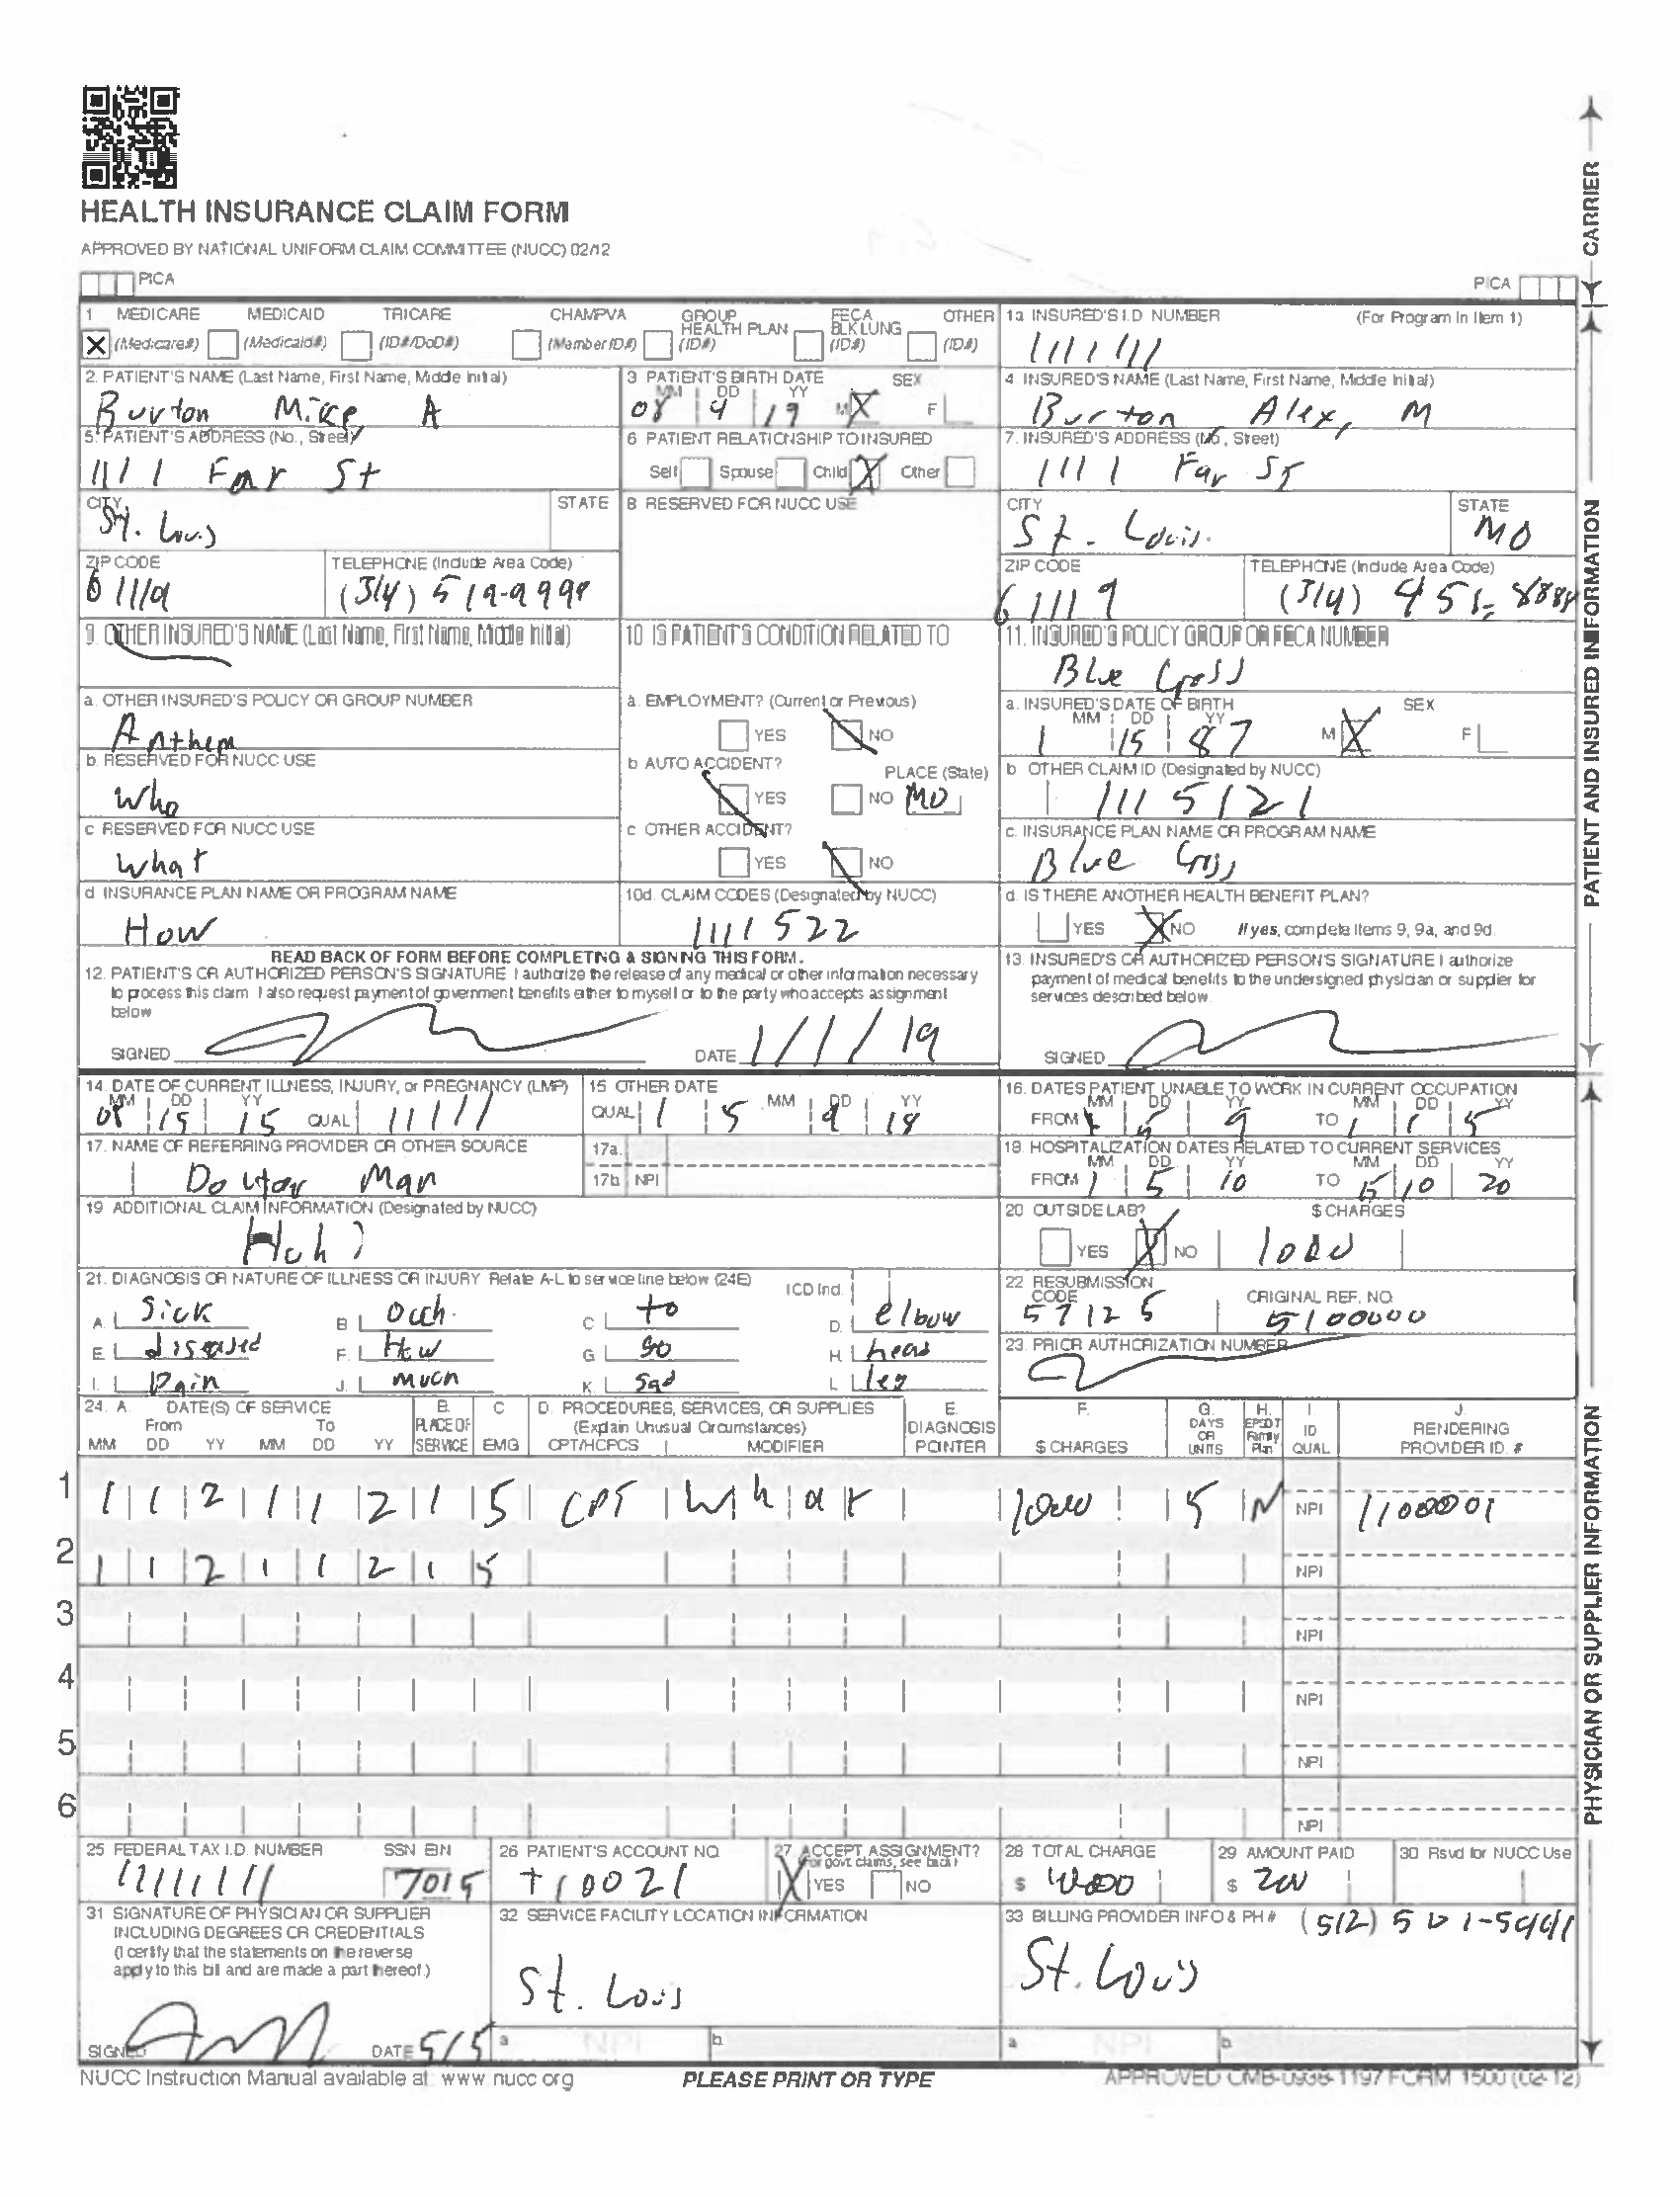 HEALTH INSURANCE CLAIM FORM
APPROVED BY NATIONAL UNIFORM CLAIM COMMITTEE (NUCC) 02/12
PICA PICA
CARRIER
1 MEDICARE MEDICAID TRICARE CHAMPVA GROUP HEALTH PLAN FECA BLK LUNG OTHER
X (Medicare#) (Medicaid#) (ID#/DoD#) (Member ID#) (ID#) (ID#) (ID#)
1a INSURED'S I.D NUMBER (For Program in Item 1)
1111111
2. PATIENT'S NAME (Last Name, First Name, Middle Initial)
Burton Mike, A
3 PATIENT'S BIRTH DATE SEX
MM DD YY
08 9 19 M X F
4. INSURED'S NAME (Last Name, First Name, Middle Initial)
Burton, Alex, M
5. PATIENT'S ADDRESS (No., Street)
1111 Far St
6 PATIENT RELATIONSHIP TO INSURED
Self Spouse Child X Other
7. INSURED'S ADDRESS (No., Street)
1111 Far St
CITY STATE
St. Louis
8 RESERVED FOR NUCC USE
CITY STATE
St. Louis. MO
ZIP CODE TELEPHONE (Include Area Code)
61119 (314) 519-9999
ZIP CODE TELEPHONE (Include Area Code)
61119 (314) 451-8888
9. OTHER INSURED'S NAME (Last Name, First Name, Middle Initial)
10 IS PATIENT'S CONDITION RELATED TO
11. INSURED'S POLICY GROUP OR FECA NUMBER
Blue Cross
a. OTHER INSURED'S POLICY OR GROUP NUMBER
Anthem
a. EMPLOYMENT? (Current or Previous)
YES NO
a. INSURED'S DATE OF BIRTH SEX
MM DD YY
1 15 87 M X F
b. RESERVED FOR NUCC USE
Who
b AUTO ACCIDENT? PLACE (State)
YES NO MO
b OTHER CLAIM ID (Designated by NUCC)
1115121
c RESERVED FOR NUCC USE
What
c OTHER ACCIDENT?
YES NO
c. INSURANCE PLAN NAME OR PROGRAM NAME
Blue Cross
d INSURANCE PLAN NAME OR PROGRAM NAME
How
10d. CLAIM CODES (Designated by NUCC)
1111522
d. IS THERE ANOTHER HEALTH BENEFIT PLAN?
YES X NO If yes, complete items 9, 9a, and 9d.
READ BACK OF FORM BEFORE COMPLETING & SIGNING THIS FORM.
12. PATIENT'S OR AUTHORIZED PERSON'S SIGNATURE I authorize the release of any medical or other information necessary
to process this claim I also request payment of government benefits either to myself or to the party who accepts assignment
below
SIGNED DATE 1/1/19
13. INSURED'S OR AUTHORIZED PERSON'S SIGNATURE I authorize
payment of medical benefits to the undersigned physician or supplier for
services described below.
SIGNED
PATIENT AND INSURED INFORMATION
14. DATE OF CURRENT ILLNESS, INJURY, or PREGNANCY (LMP)
MM DD YY
08 15 15 QUAL 11111
15 OTHER DATE
MM DD YY
QUAL 1 5 9 18
16. DATES PATIENT UNABLE TO WORK IN CURRENT OCCUPATION
MM DD YY MM DD YY
FROM 5 9 TO 1 1 5
17. NAME OF REFERRING PROVIDER OR OTHER SOURCE
Doctor Man
17a.
17b NPI
18. HOSPITALIZATION DATES RELATED TO CURRENT SERVICES
MM DD YY MM DD YY
FROM 1 5 10 TO 5 10 20
19 ADDITIONAL CLAIM INFORMATION (Designated by NUCC)
Huh?
20 OUTSIDE LAB? $ CHARGES
YES X NO 1000
21. DIAGNOSIS OR NATURE OF ILLNESS OR INJURY Relate A-L to service line below (24E) ICD Ind.
A. Sick B. Ouch. C. to D. elbow
E. diseased F. How G. so H. head
I. Pain J. much K. sad L. leg
22 RESUBMISSION CODE ORIGINAL REF. NO.
57125 5100000
23. PRIOR AUTHORIZATION NUMBER
24. A. DATE(S) OF SERVICE B. PLACE OF SERVICE C EMG D. PROCEDURES, SERVICES, OR SUPPLIES E. DIAGNOSIS POINTER F. $ CHARGES G. DAYS OR UNITS H. EPSDT Family Plan I ID QUAL J. RENDERING PROVIDER ID. #
From To (Explain Unusual Circumstances)
MM DD YY MM DD YY CPT/HCPCS MODIFIER
1 1 1 2 1 1 2 1 5 CPT W h a t 1000 5 N NPI 1100001
2 1 1 2 1 1 2 1 5 NPI
3 NPI
4 NPI
5 NPI
6 NPI
PHYSICIAN OR SUPPLIER INFORMATION
25 FEDERAL TAX I.D. NUMBER SSN EIN
11111111 7015
26 PATIENT'S ACCOUNT NO.
+10021
27 ACCEPT ASSIGNMENT?
(For govt. claims, see back)
X YES NO
28 TOTAL CHARGE
$
29 AMOUNT PAID
$ 200
30 Rsvd for NUCC Use
31 SIGNATURE OF PHYSICIAN OR SUPPLIER
INCLUDING DEGREES OR CREDENTIALS
(I certify that the statements on the reverse
apply to this bill and are made a part thereof.)
SIGNED DATE 5/5
32 SERVICE FACILITY LOCATION INFORMATION
St. Louis
a NPI b
33 BILLING PROVIDER INFO & PH # (512) 501-5441
St. Louis
a NPI b
NUCC Instruction Manual available at: www.nucc.org
PLEASE PRINT OR TYPE
APPROVED OMB-0938-1197 FORM 1500 (02-12)